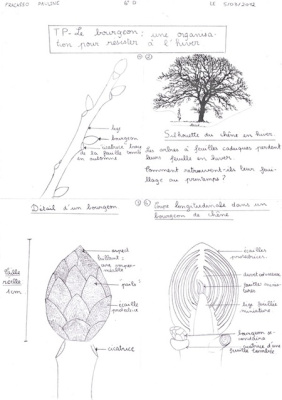 FRICARED PAULINE 6°D LE 5/03/2012
TP- Le bourgeon : une organisa-
tion pour résister à l'hiver
tige
bourgeon
cicatrice
de la feuille tombée
en automne
Silhouette du chêne en hiver.
Les arbres à feuilles caduques perdent
leurs feuille en hiver.
Comment retrouvent-ils leur feui-
llage au printemps?
Détail d'un bourgeon
Coupe longitudinale dans un
bourgeon de chêne
Taille
réelle
1cm
aspect
brillant:
une imper-
méable
poils
écaille
protectrice
cicatrice
écailles
protectrices
duvet cotonneux
feuilles minia-
tures
tige feuillée
miniature
bourgeon se-
condaire
cicatrice d'une
feuille tombée